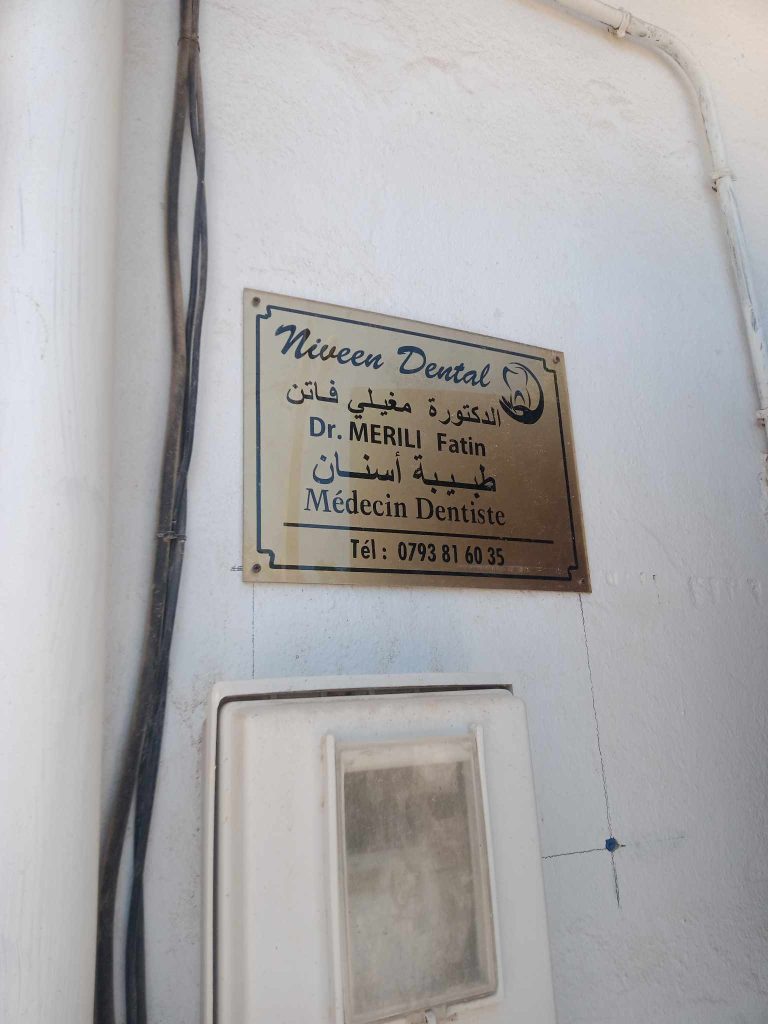 Niveen Dental
الدكتورة مغيلي فاتن
Dr. MERILI Fatin
طبيبة أسنـــان
Médecin Dentiste
Tél : 0793 81 60 35